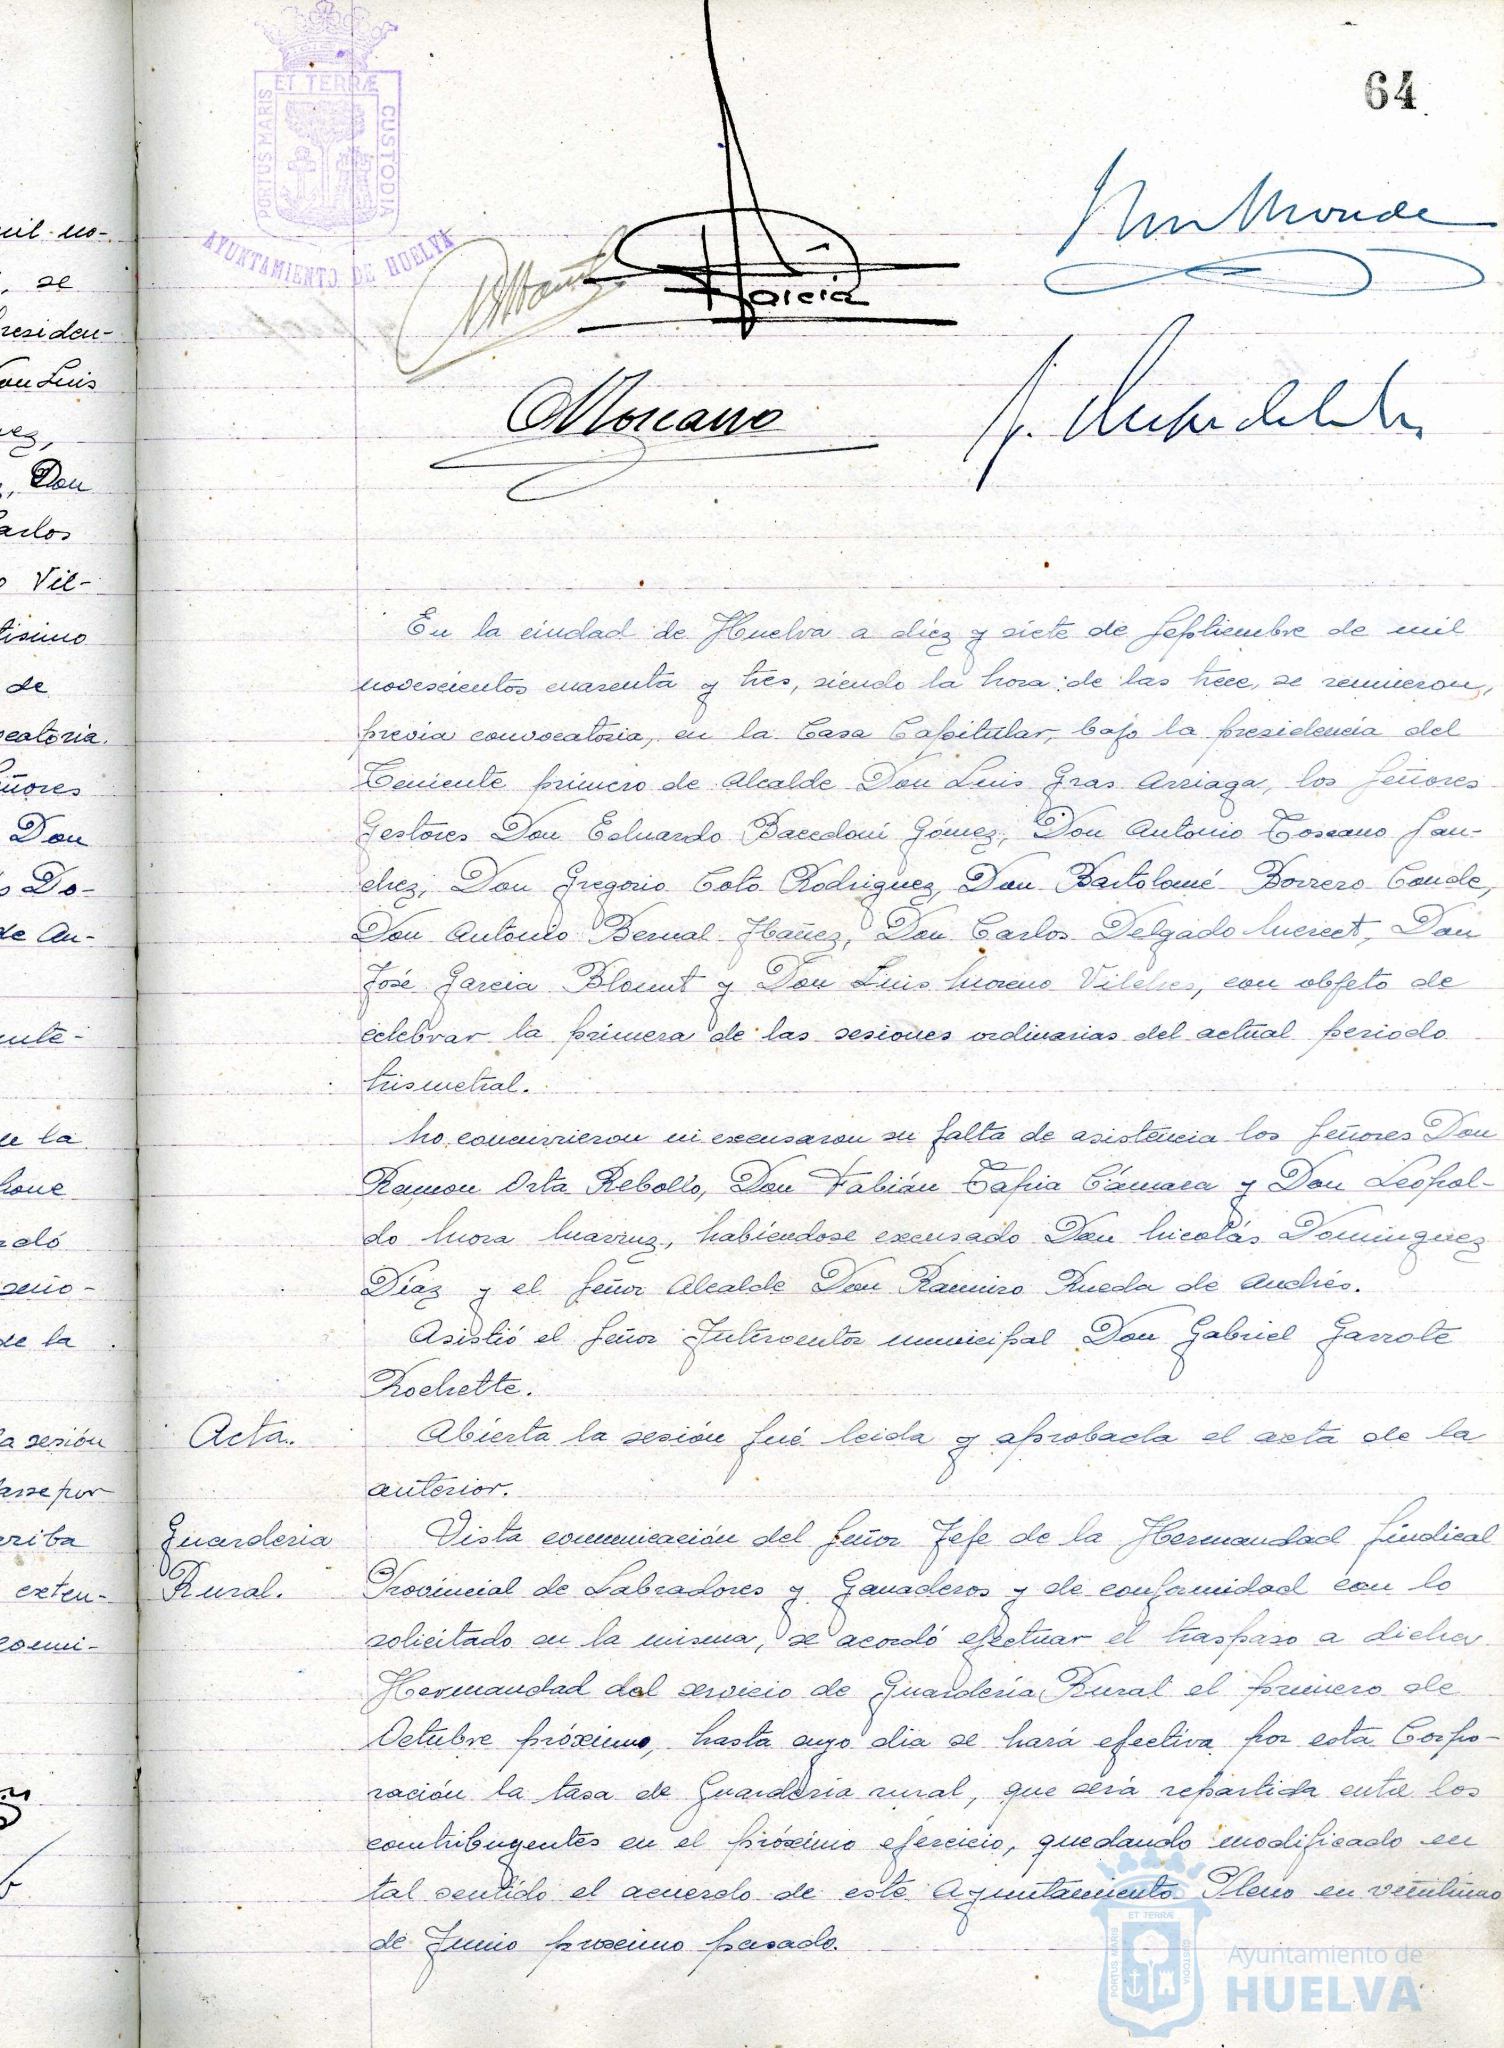 64
ET TERRÆ
PORTUS MARIS
CUSTODIA
AYUNTAMIENTO DE HUELVA
García
Moscano
uil no-
, se
residen-
on Luis
vez,
, Don
arlos
o Vil-
tisimo
de
ocatoria.
eñores
Don
s Do-
de An-
ante-
de la
hone
rdó
seño-
de la
la sesión
arse por
rriba
exten-
comi-
En la ciudad de Huelva a diez y siete de Septiembre de mil
novescientos cuarenta y tres, siendo la hora de las trece, se reunieron,
previa convocatoria, en la Casa Capitular, bajo la presidencia del
Teniente primero de Alcalde Don Luis Gras Arriaga, los Señores
Gestores Don Eduardo Bacedoni Gómez, Don Antonio Toscano San-
chez, Don Gregorio Coto Rodriguez, Don Bartolomé Borrero Conde,
Don Antonio Bernal Ibañez, Don Carlos Delgado Merect, Don
José Garcia Blount y Don Luis Moreno Vilches, con objeto de
celebrar la primera de las sesiones ordinarias del actual periodo
trismetral.
No concurrieron ni excusaron su falta de asistencia los Señores Don
Ramon Orta Rebollo, Don Fabián Tapia Cámara y Don Leopol-
do Mora Marruz, habiendose excusado Don Nicolás Dominguez
Díaz y el Señor Alcalde Don Ramiro Rueda de Andrés.
Asistió el Señor Interventor municipal Don Gabriel Garrote
Rochette.
Acta.
Abierta la sesión fué leida y aprobada el acta de la
anterior.
Guarderia
Rural.
Vista comunicación del Señor Jefe de la Hermandad Sindical
Provincial de Labradores y Ganaderos y de conformidad con lo
solicitado en la misma, se acordó efectuar el traspaso a dicha
Hermandad del servicio de Guardería Rural el primero de
Octubre próximo, hasta cuyo dia se hará efectiva por esta Corpo-
ración la tasa de Guarderia rural, que será repartida entre los
contribuyentes en el próximo ejercicio, quedando modificado en
tal sentido el acuerdo de este Ayuntamiento Pleno en veintiuno
de Junio proximo pasado.
ET TERRÆ
PORTUS MARIS
CUSTODIA
Ayuntamiento de
HUELVA